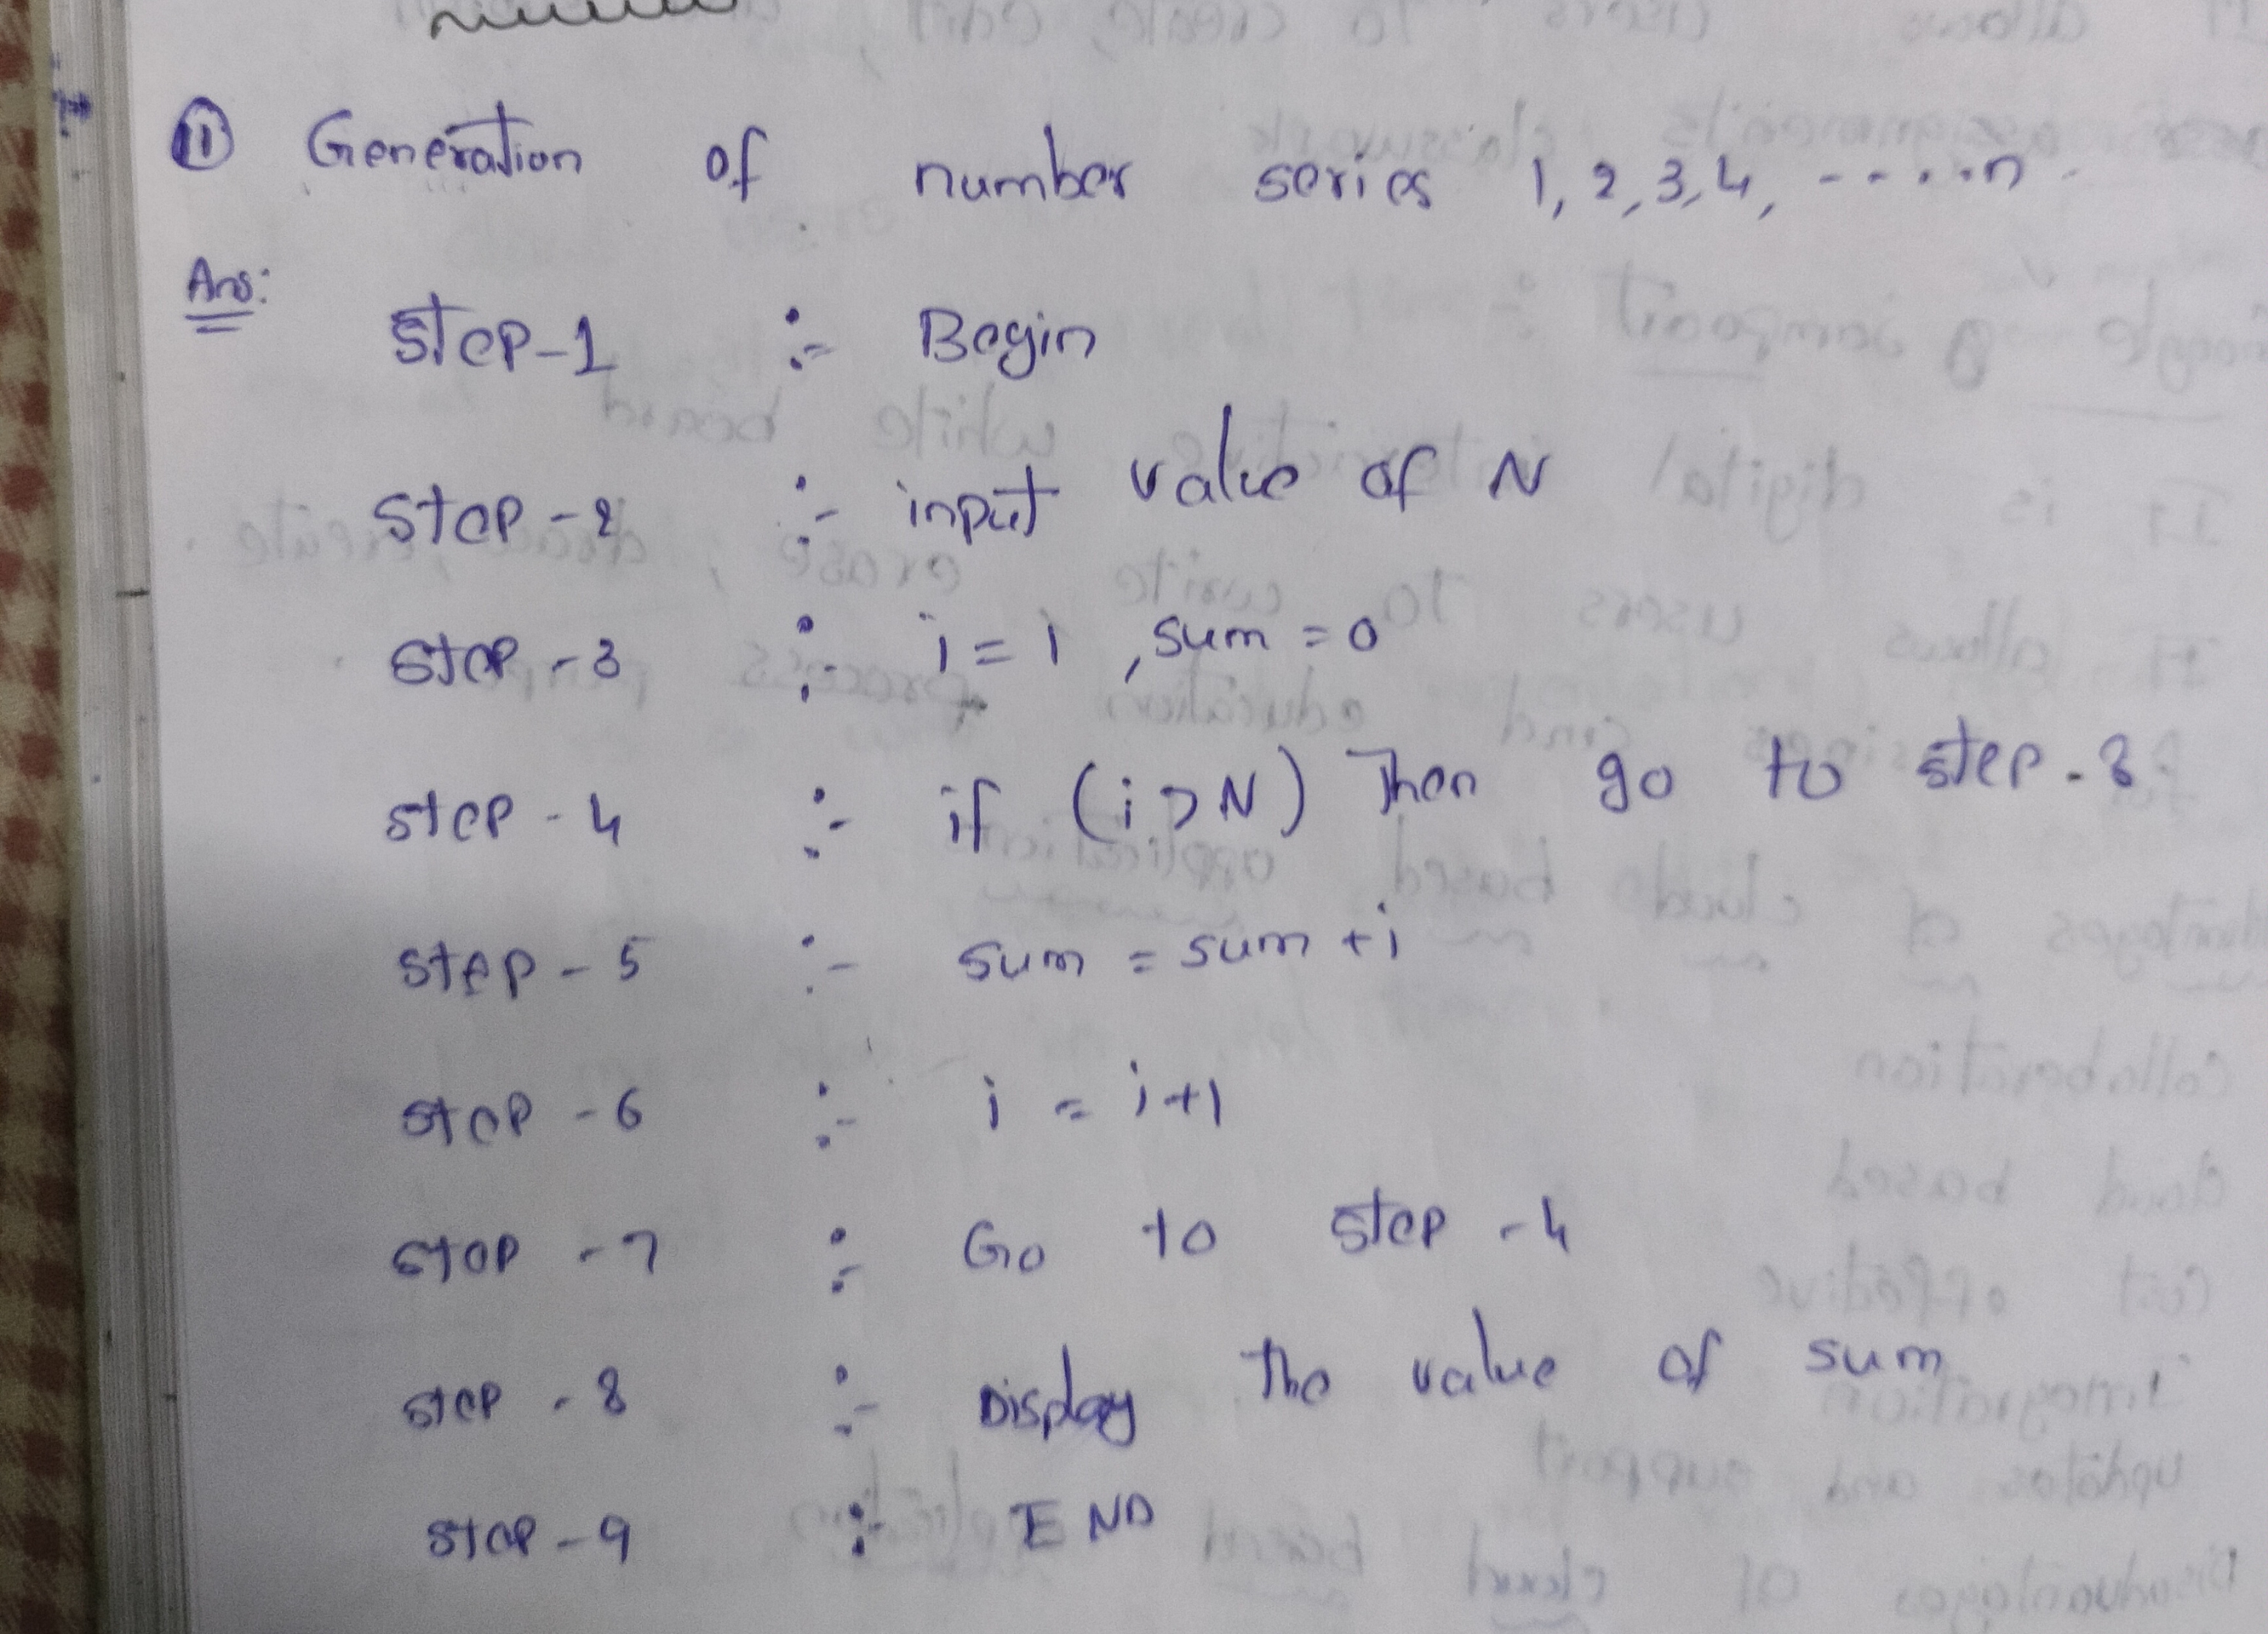 11 Generation of number series 1, 2, 3, 4, -----n.
Ans:
Step-1 :- Begin
Step-2 :- input value of N
Step-3 :- i = 1, sum = 0
Step-4 :- if (i > N) Then go to step-8
Step-5 :- sum = sum + i
Step-6 :- i = i+1
Step-7 :- Go to step-4
Step-8 :- Display the value of sum
Step-9 :- END